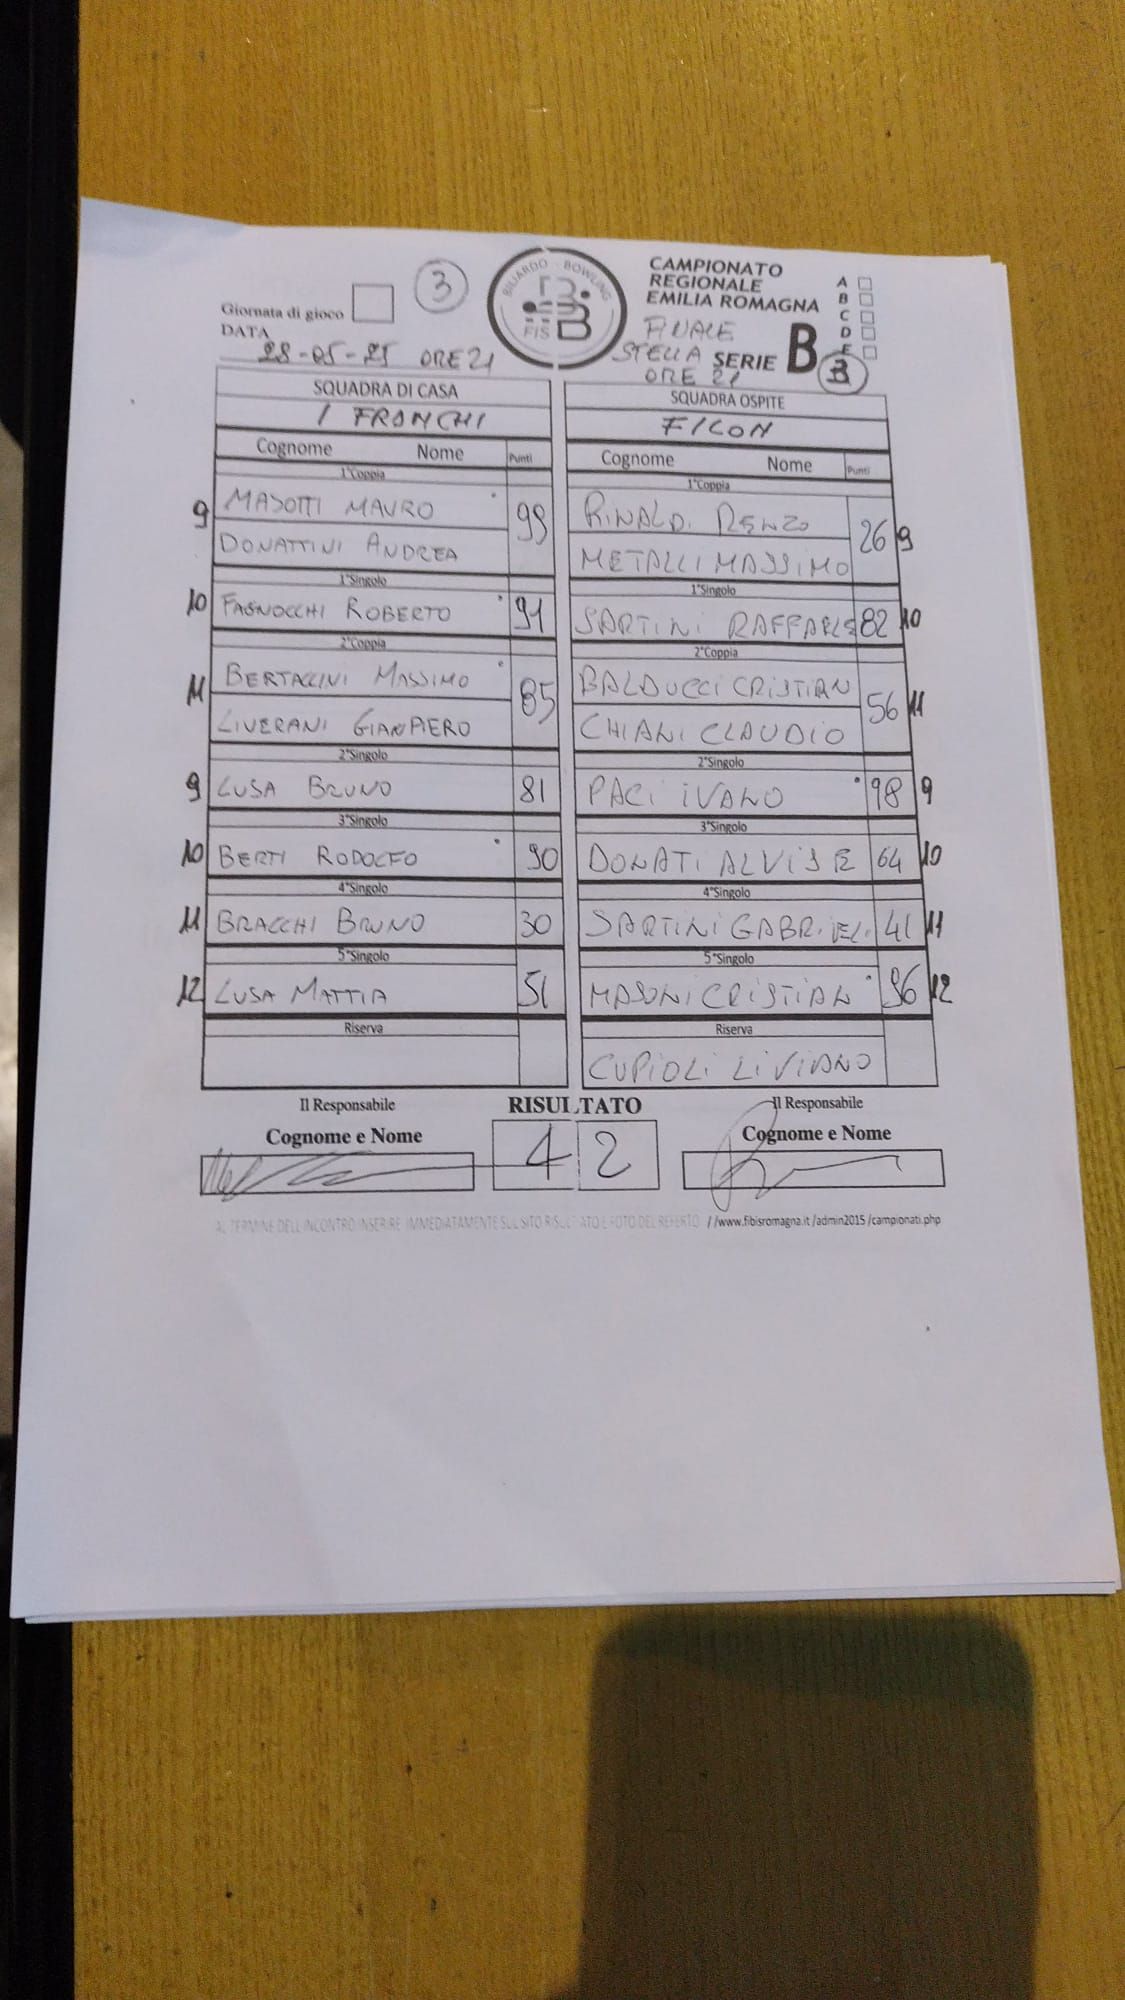 Giornata di gioco
3
BILIARDO - BOWLING
FIS
CAMPIONATO
REGIONALE
EMILIA ROMAGNA
A
B
C
D
E
DATA
28-05-25 ORE 21
FINALE
STELLA SERIE B
ORE 21
B
SQUADRA DI CASA
I FRANCHI
Cognome Nome Punti
1°Coppia
9 MASOTTI MAURO 99
DONATTINI ANDREA
1°Singolo
10 FAGNOCCHI ROBERTO 91
2°Coppia
11 BERTACCINI MASSIMO 85
LIVERANI GIANPIERO
2°Singolo
9 LUSA BRUNO 81
3°Singolo
10 BERTI RODOLFO 90
4°Singolo
11 BRACCHI BRUNO 30
5°Singolo
12 LUSA MATTIA 51
Riserva
SQUADRA OSPITE
FICON
Cognome Nome Punti
1°Coppia
RINALDI RENZO 26 9
METALLI MASSIMO
1°Singolo
SARTINI RAFFAELE 82 10
2°Coppia
BALDUCCI CRISTIAN 56 11
CHIANI CLAUDIO
2°Singolo
PACI IVANO 98 9
3°Singolo
DONATI ALVISE 64 10
4°Singolo
SARTINI GABRIELI 41 11
5°Singolo
MASONI CRISTIAN 96 12
Riserva
CUPIOLI LIVIANO
Il Responsabile
Cognome e Nome
RISULTATO
4 2
Il Responsabile
Cognome e Nome
AL TERMINE DELL'INCONTRO INSERIRE IMMEDIATAMENTE SUL SITO RISULTATO E FOTO DEL REFERTO //www.fibisromagna.it/admin2015/campionati.php